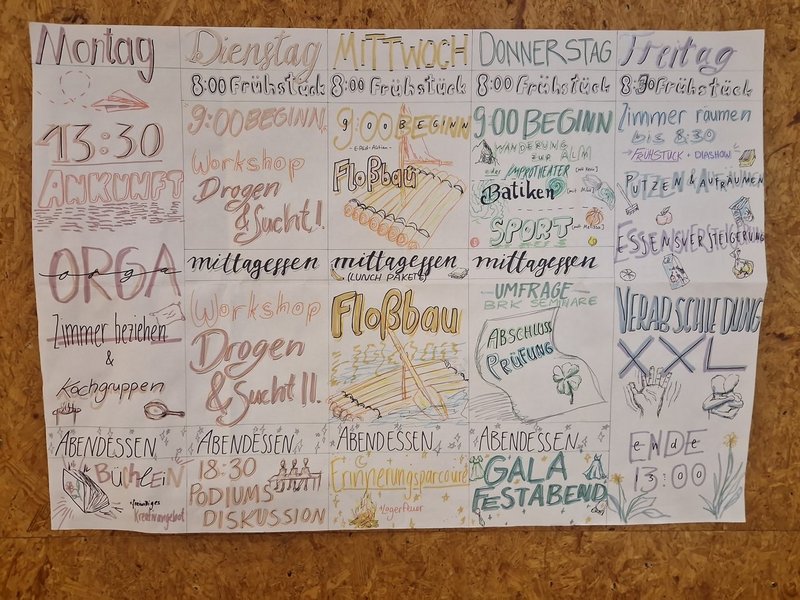 Montag
13:30
ANKUNFT
ORGA
orga
Zimmer beziehen
&
Kochgruppen
ABENDESSEN
BÜCHLEIN
+ freiwilliges
Kreativangebot
Dienstag
8:00 Frühstück
9:00 BEGINN
Workshop
Drogen
& Sucht I.
mittagessen
Workshop
Drogen
& Sucht II.
ABENDESSEN
18:30
PODIUMS
DISKUSSION
MITTWOCH
8:00 Frühstück
9:00 BEGINN
Floßbau
mittagessen
(LUNCH PAKETE)
Floßbau
ABENDESSEN
Erinnerungsparcours
+Lagerfeuer
DONNERSTAG
8:00 Frühstück
9:00 BEGINN
WANDERUNG
ZUR ALM
oder IMPROTHEATER
Batiken
SPORT
mittagessen
UMFRAGE
BRK SEMINARE
ABSCHLUSS
PRÜFUNG
ABENDESSEN
GALA
FESTABEND
Freitag
8:30 Frühstück
Zimmer räumen
bis 8:30
→ FRÜHSTÜCK + DIASHOW
PUTZEN & AUFRÄUMEN
ESSENSVERSTEIGERUNG
VERABSCHIEDUNG
XXL
ende
13:00